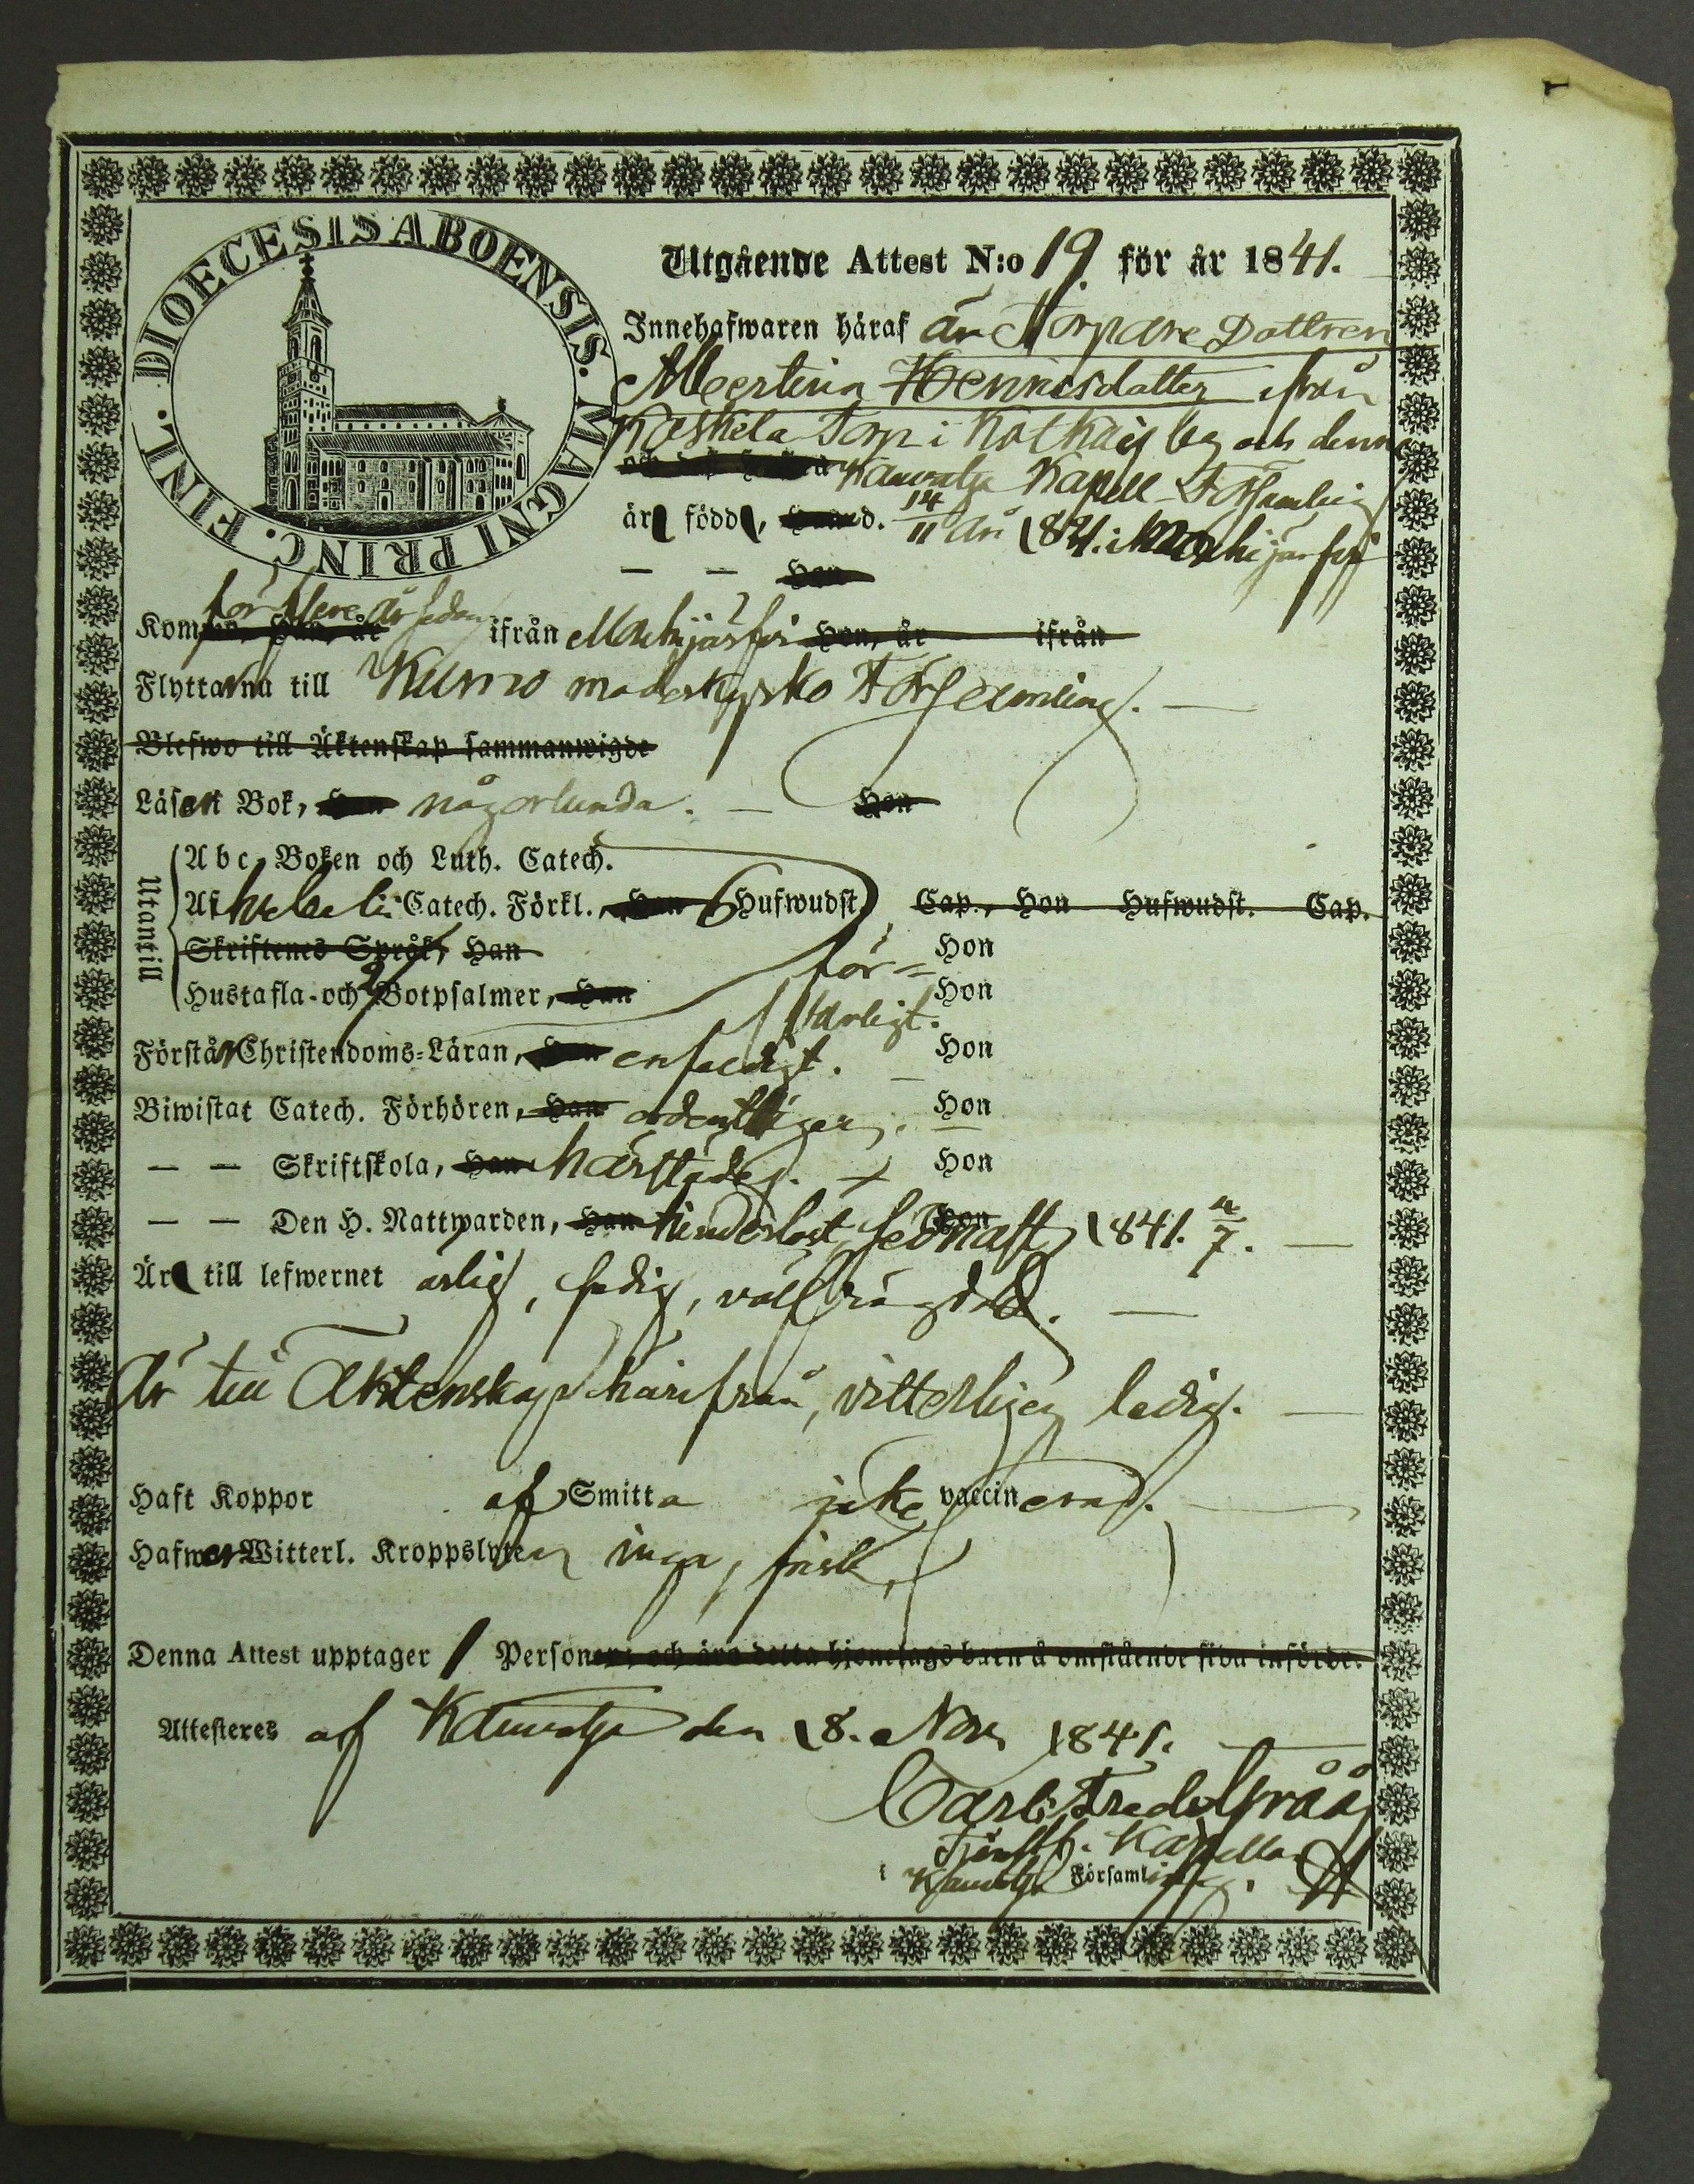 DIOECESIS ABOENSIS. MAGNI PRINC. FINL.
Utgående Attest N:o 19. för år 1841.
Innehafwaren häraf är Torpare Dottren
Albertina Hennicsdotter ifrån
Keskela Torp i by och denna
Kauvatsa Kapell-Församling
är född, d. 14/11 år 1821. i Mouhijärfvi
— — Hon
Kom för flere år sedan ifrån Mouhijärfvi Hon, år ifrån
Flyttar nu till Kumo moderkyrko Församling. —
Blefwo till Äktenskap sammanwigde
Läser i Bok, Han någorlunda. — Hon
Utantill
Abc-Boken och Luth. Catech.
Af hela Catech. Förkl., Han 6 Hufwudst. Cap., Hon Hufwudst. Cap.
Skriftenes Språk, Han för= Hon
Hustafla och Botpsalmer, Han Hon
Förstår Christendoms-Läran, Han enfaldigt. — Hon
Biwistat Catech. Förhören, Han ordentligen. Hon
— — Skriftskola, Han härstädes. Hon
— — Den H. Nattwarden, Han Hon 1841. /7. —
Är till lefwernet ärlig, sedig, välfrägdad. —
Är till Äktenskap härifrån, vitterligen ledig. —
Haft Koppor af Smitta icke vaccinerad. —
Hafwer Witterl. Kroppslyten inga, frisk.
Denna Attest upptager 1 Personer, och äro detta hjonelags barn å omstående sida införde.
Attesteres af Kauvatsa den 18. Nov. 1841. —
Carl Fredr. Gråå
Kapellan
i Kauvatsa Församling.